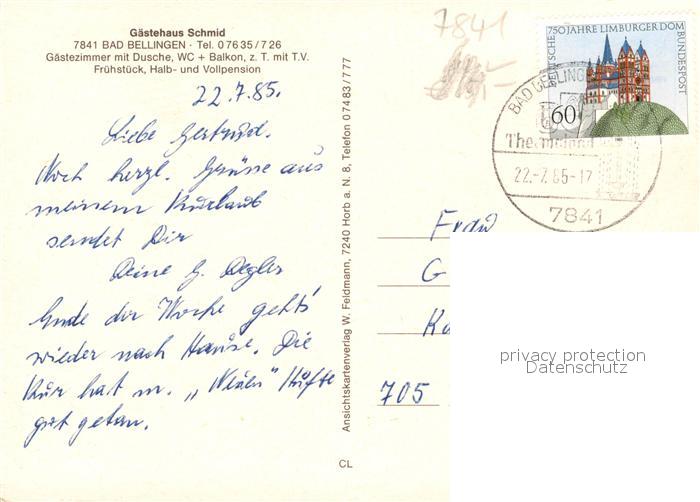 Gästehaus Schmid
7841 BAD BELLINGEN · Tel. 0 76 35 / 7 26
Gästezimmer mit Dusche, WC + Balkon, z. T. mit T.V.
Frühstück, Halb- und Vollpension
22.7.85.
Liebe Gertrud.
Noch herzl. Grüsse aus
meinem Kurlaub
sendet Dir
Deine G.
Ende der Woche geht's
wieder nach Hause. Die
Kur hat m. „ " Hüfte
gut getan.
Ansichtskartenverlag W. Feldmann, 7240 Horb a. N. 8, Telefon 0 74 83 / 7 77
CL
7841
DEUTSCHE BUNDESPOST
750 JAHRE LIMBURGER DOM
60
BAD BELLINGEN
22.-7.85-17
7841
Frau
G
Ka
705
privacy protection
Datenschutz